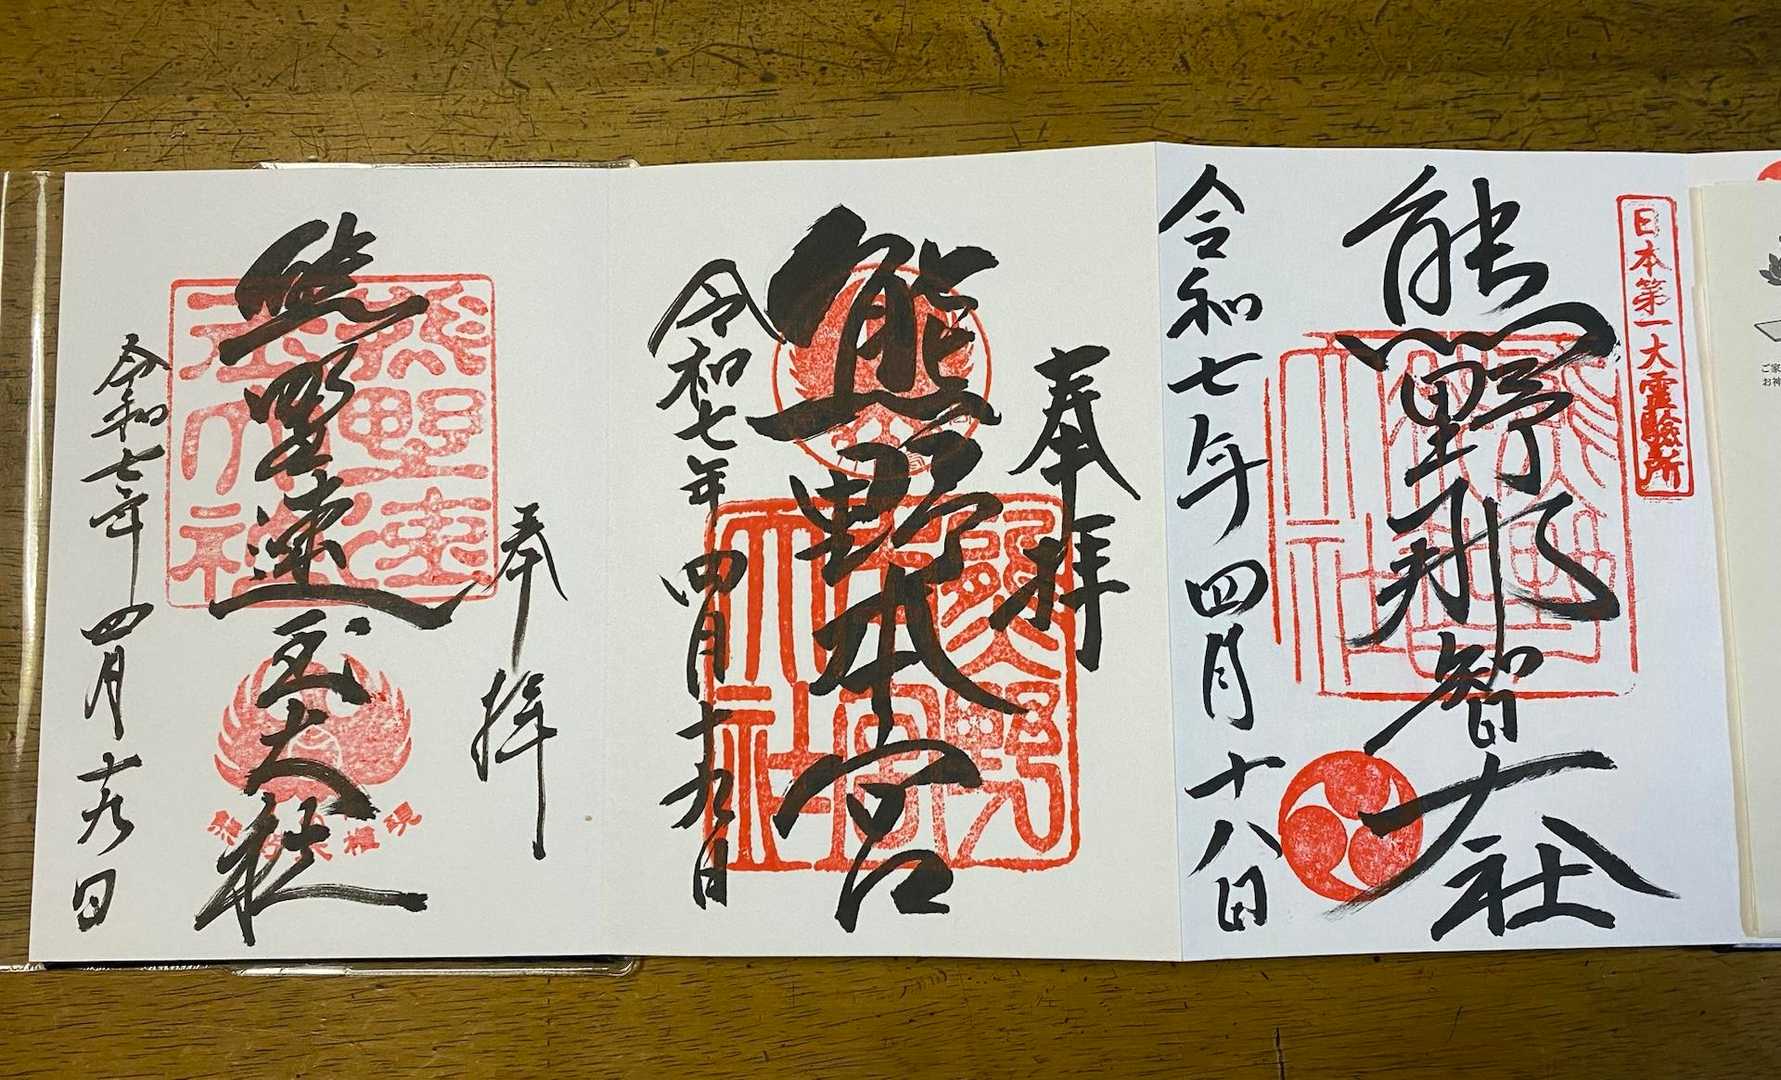 日本第一大霊験所
熊野那智大社
令和七年四月十八日
奉拝
熊野本宮
令和七年四月十九日
奉拝
熊野速玉大社
令和七年四月十九日
熊野那智大社
熊野本宮大社
ご家
お神